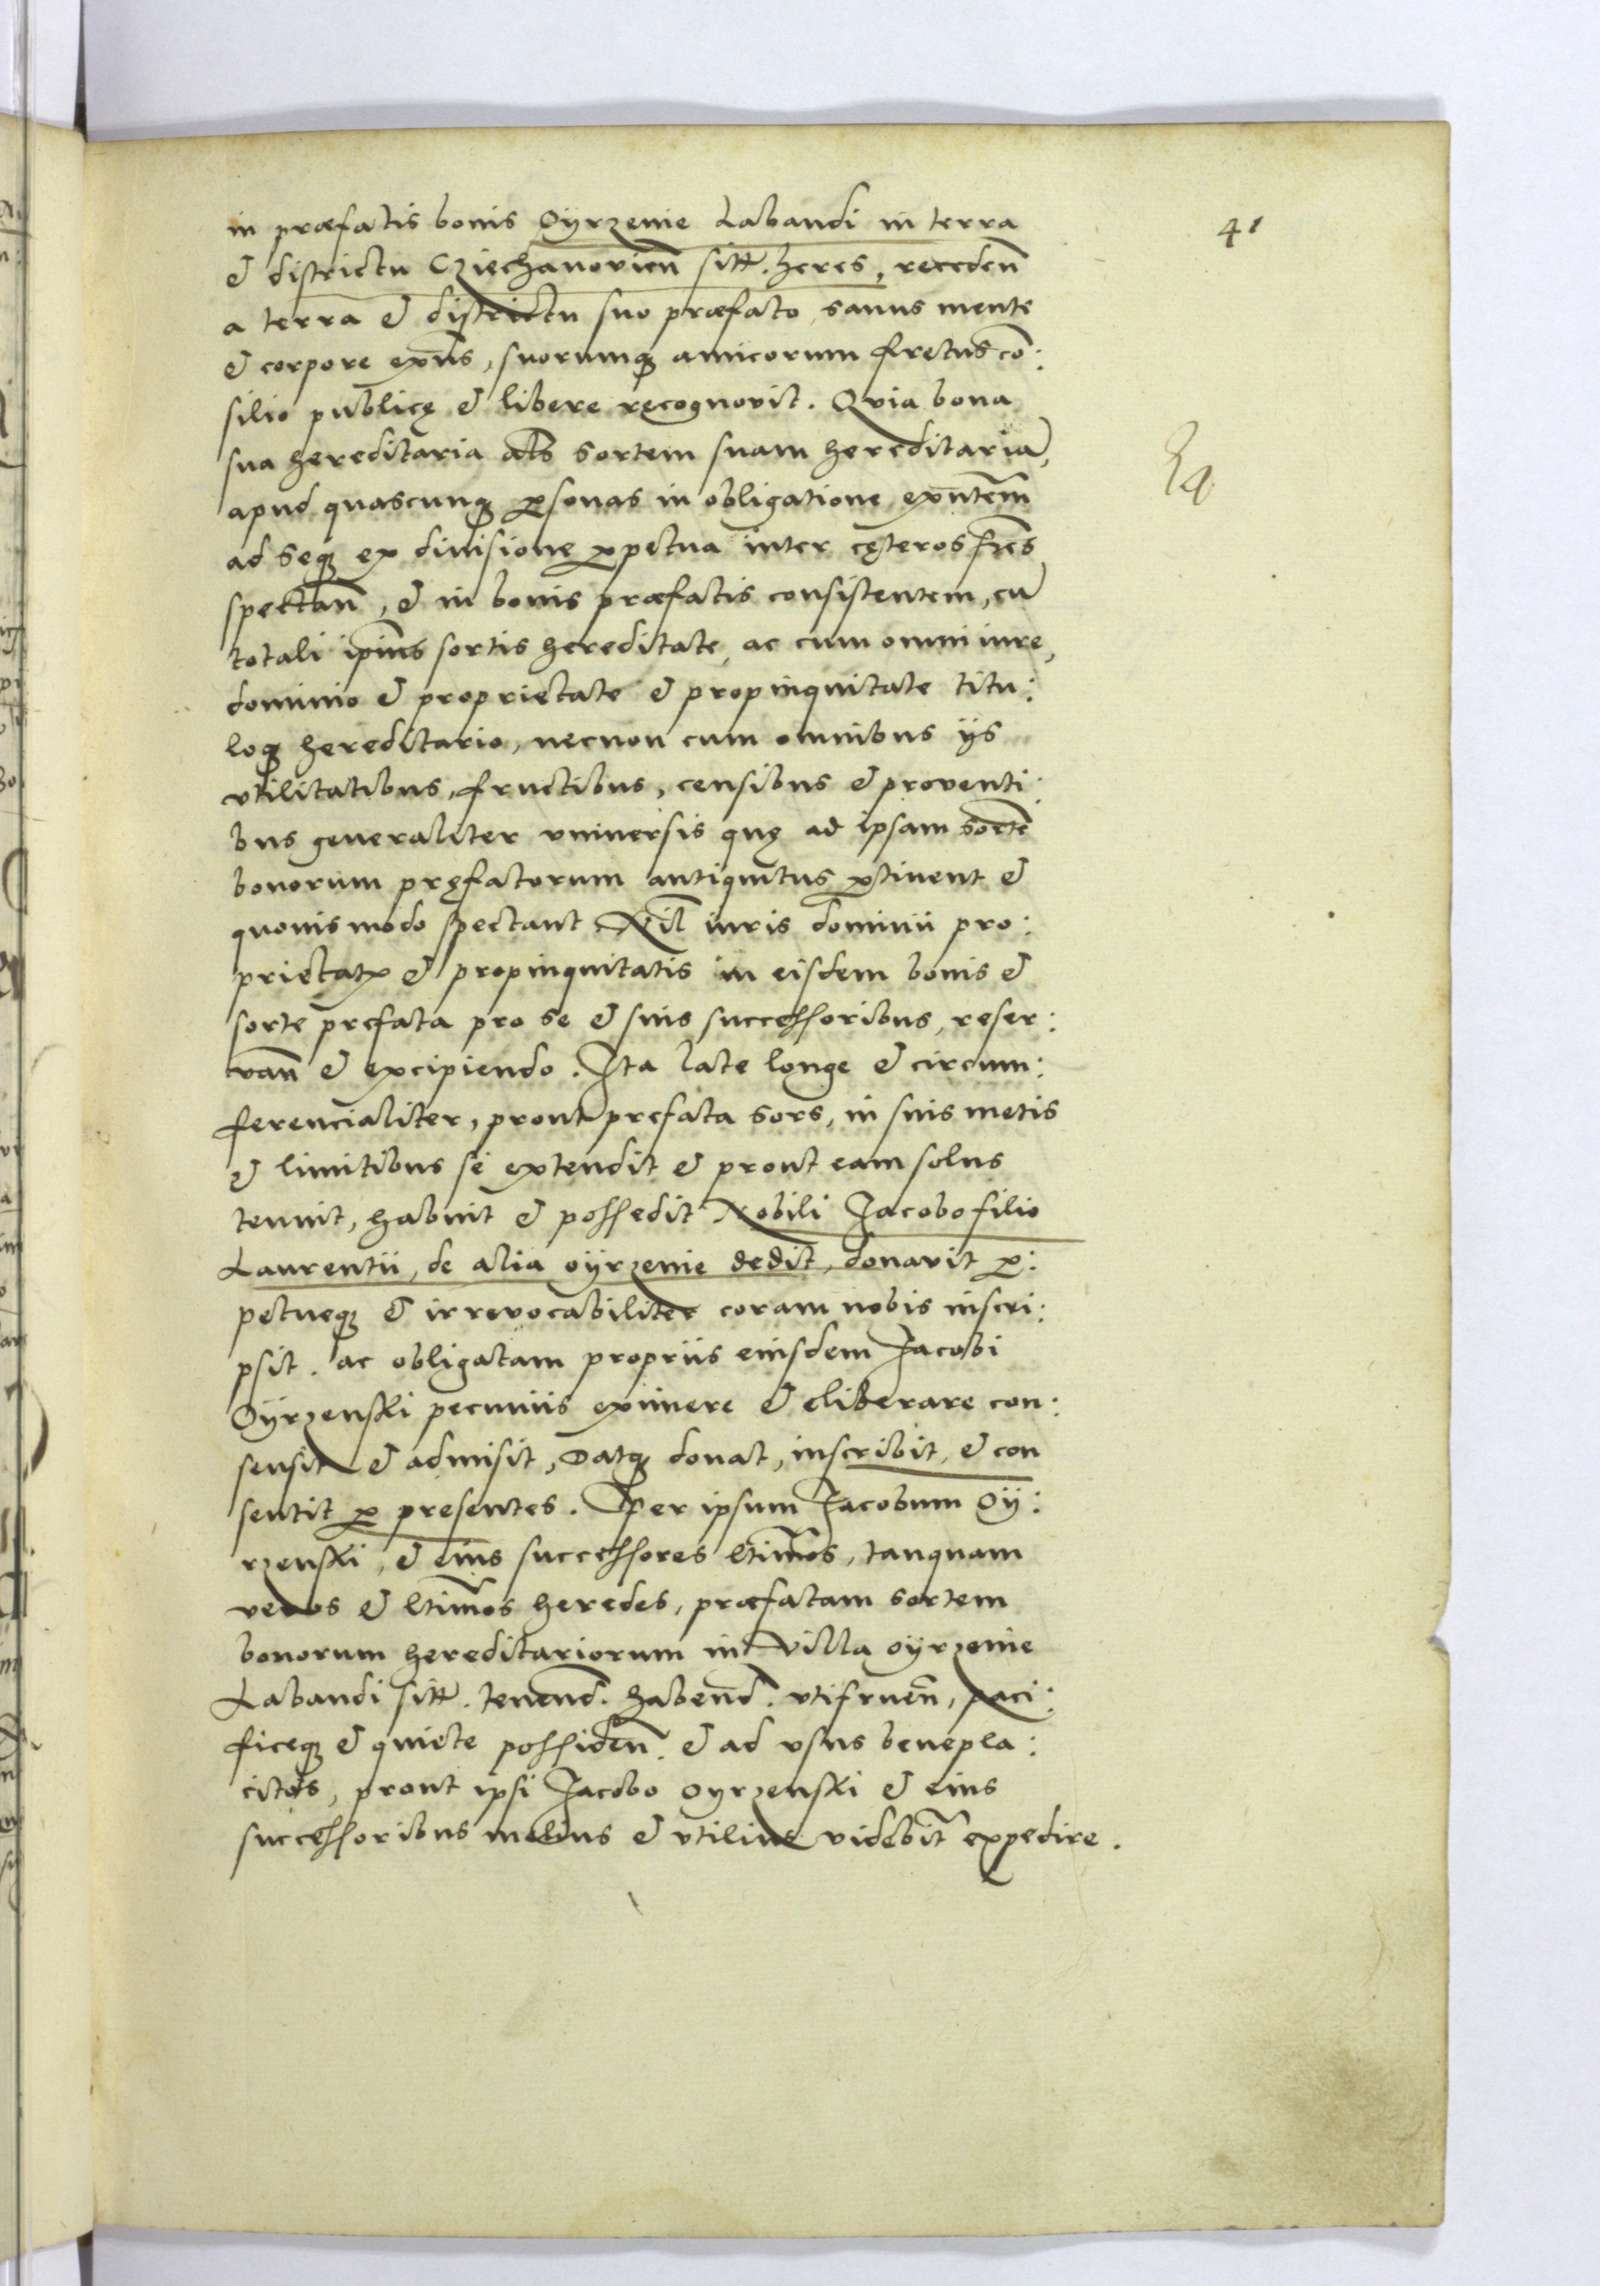 in præfatis bonis Oÿrzenie Labandi in terra
41
& districtu Cziechanovieñ sitt̃. heres, recedeñ
a terra & districtu suo præfato, sanus mente
& corpore exñs, suorumq̃ amicorum fretus cõ:
silio publicę & libere recognovit. Qvia bona
sua hereditaria als̃ sortem suam hereditariã,
apud quascunq̃ p̱sonas in obligatione exñtem̃
ad seq̃ ex diuisione p̱petua inter cęteros fr̃es
spectañ, & in bonis præfatis consistentem, cũ
totali ip̃ius sortis hereditate, ac cum omni iure,
dominio & proprietate & propinquitate titu:
loq̃ hereditario, necnon cum omnibus ijs
vtilitatibus, fructibus, censibus & proventi:
bus generaliter vniuersis quę ad ipsam sortẽ
bonorum pręfatorum antiquitus p̱tinent &
quouismodo spectant Nil̃ iuris dominii pro:
prietatꝭ & propinquitatis in eisdem bonis &
sorte prefata pro se & suis successoribus, reser:
vañ & excipiendo. Ita late longe & circum:
ferencialiter, prout prefata sors, in suis metis
& limitibus se extendit & prout eam solus
tenuit, habuit & possedit Nobili Jacobo filio
Laurentii, de alia oÿrzenie dedit, donavit p̱:
petueq̃ & irrevocabiliter coram nobis inscri:
psit. ac obligatam propriis eiusdem Jacobi
Oÿrzenski pecuniis eximere & eliberare con:
sensit & admisit, Datq̃ donat, inscribit, & con
sentit p̱ presentes. Per ipsum Jacobum Oÿ:
rzenski, & eius successores ltim̃os, tanquam
veros & ltim̃os heredes, præfatam sortem
bonorum hereditariorum in villa oÿrzenie
Labandi sitt̃. teneñd. habeñd. vtifrueñ, paci:
ficeq̃ & quiete possideñ. & ad vsus benepla:
citos, prout ipsi Jacobo oyrzenski & eius
successoribus melius & vtilius videbit̃ expedire.